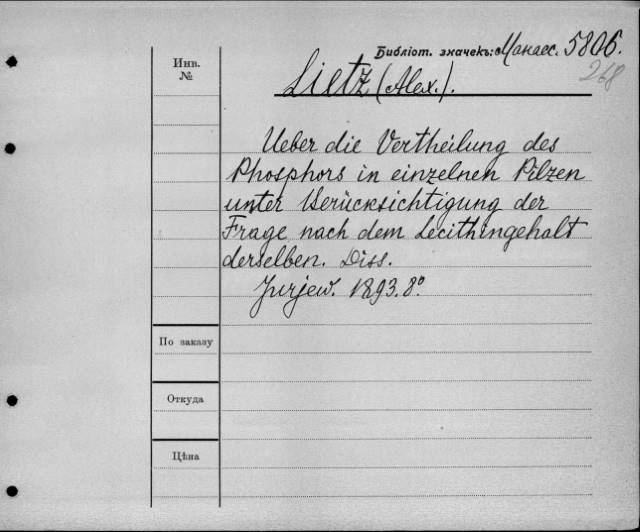 Библіот. значекъ: Манасс. 5806.
268
Инв.
№
Lietz (Alex.).
Ueber die Vertheilung des
Phosphors in einzelnen Pilzen
unter Berücksichtigung der
Frage nach dem Lecithingehalt
derselben. Diss.
Jurjew. 1893. 8°
По заказу
Откуда
Цѣна